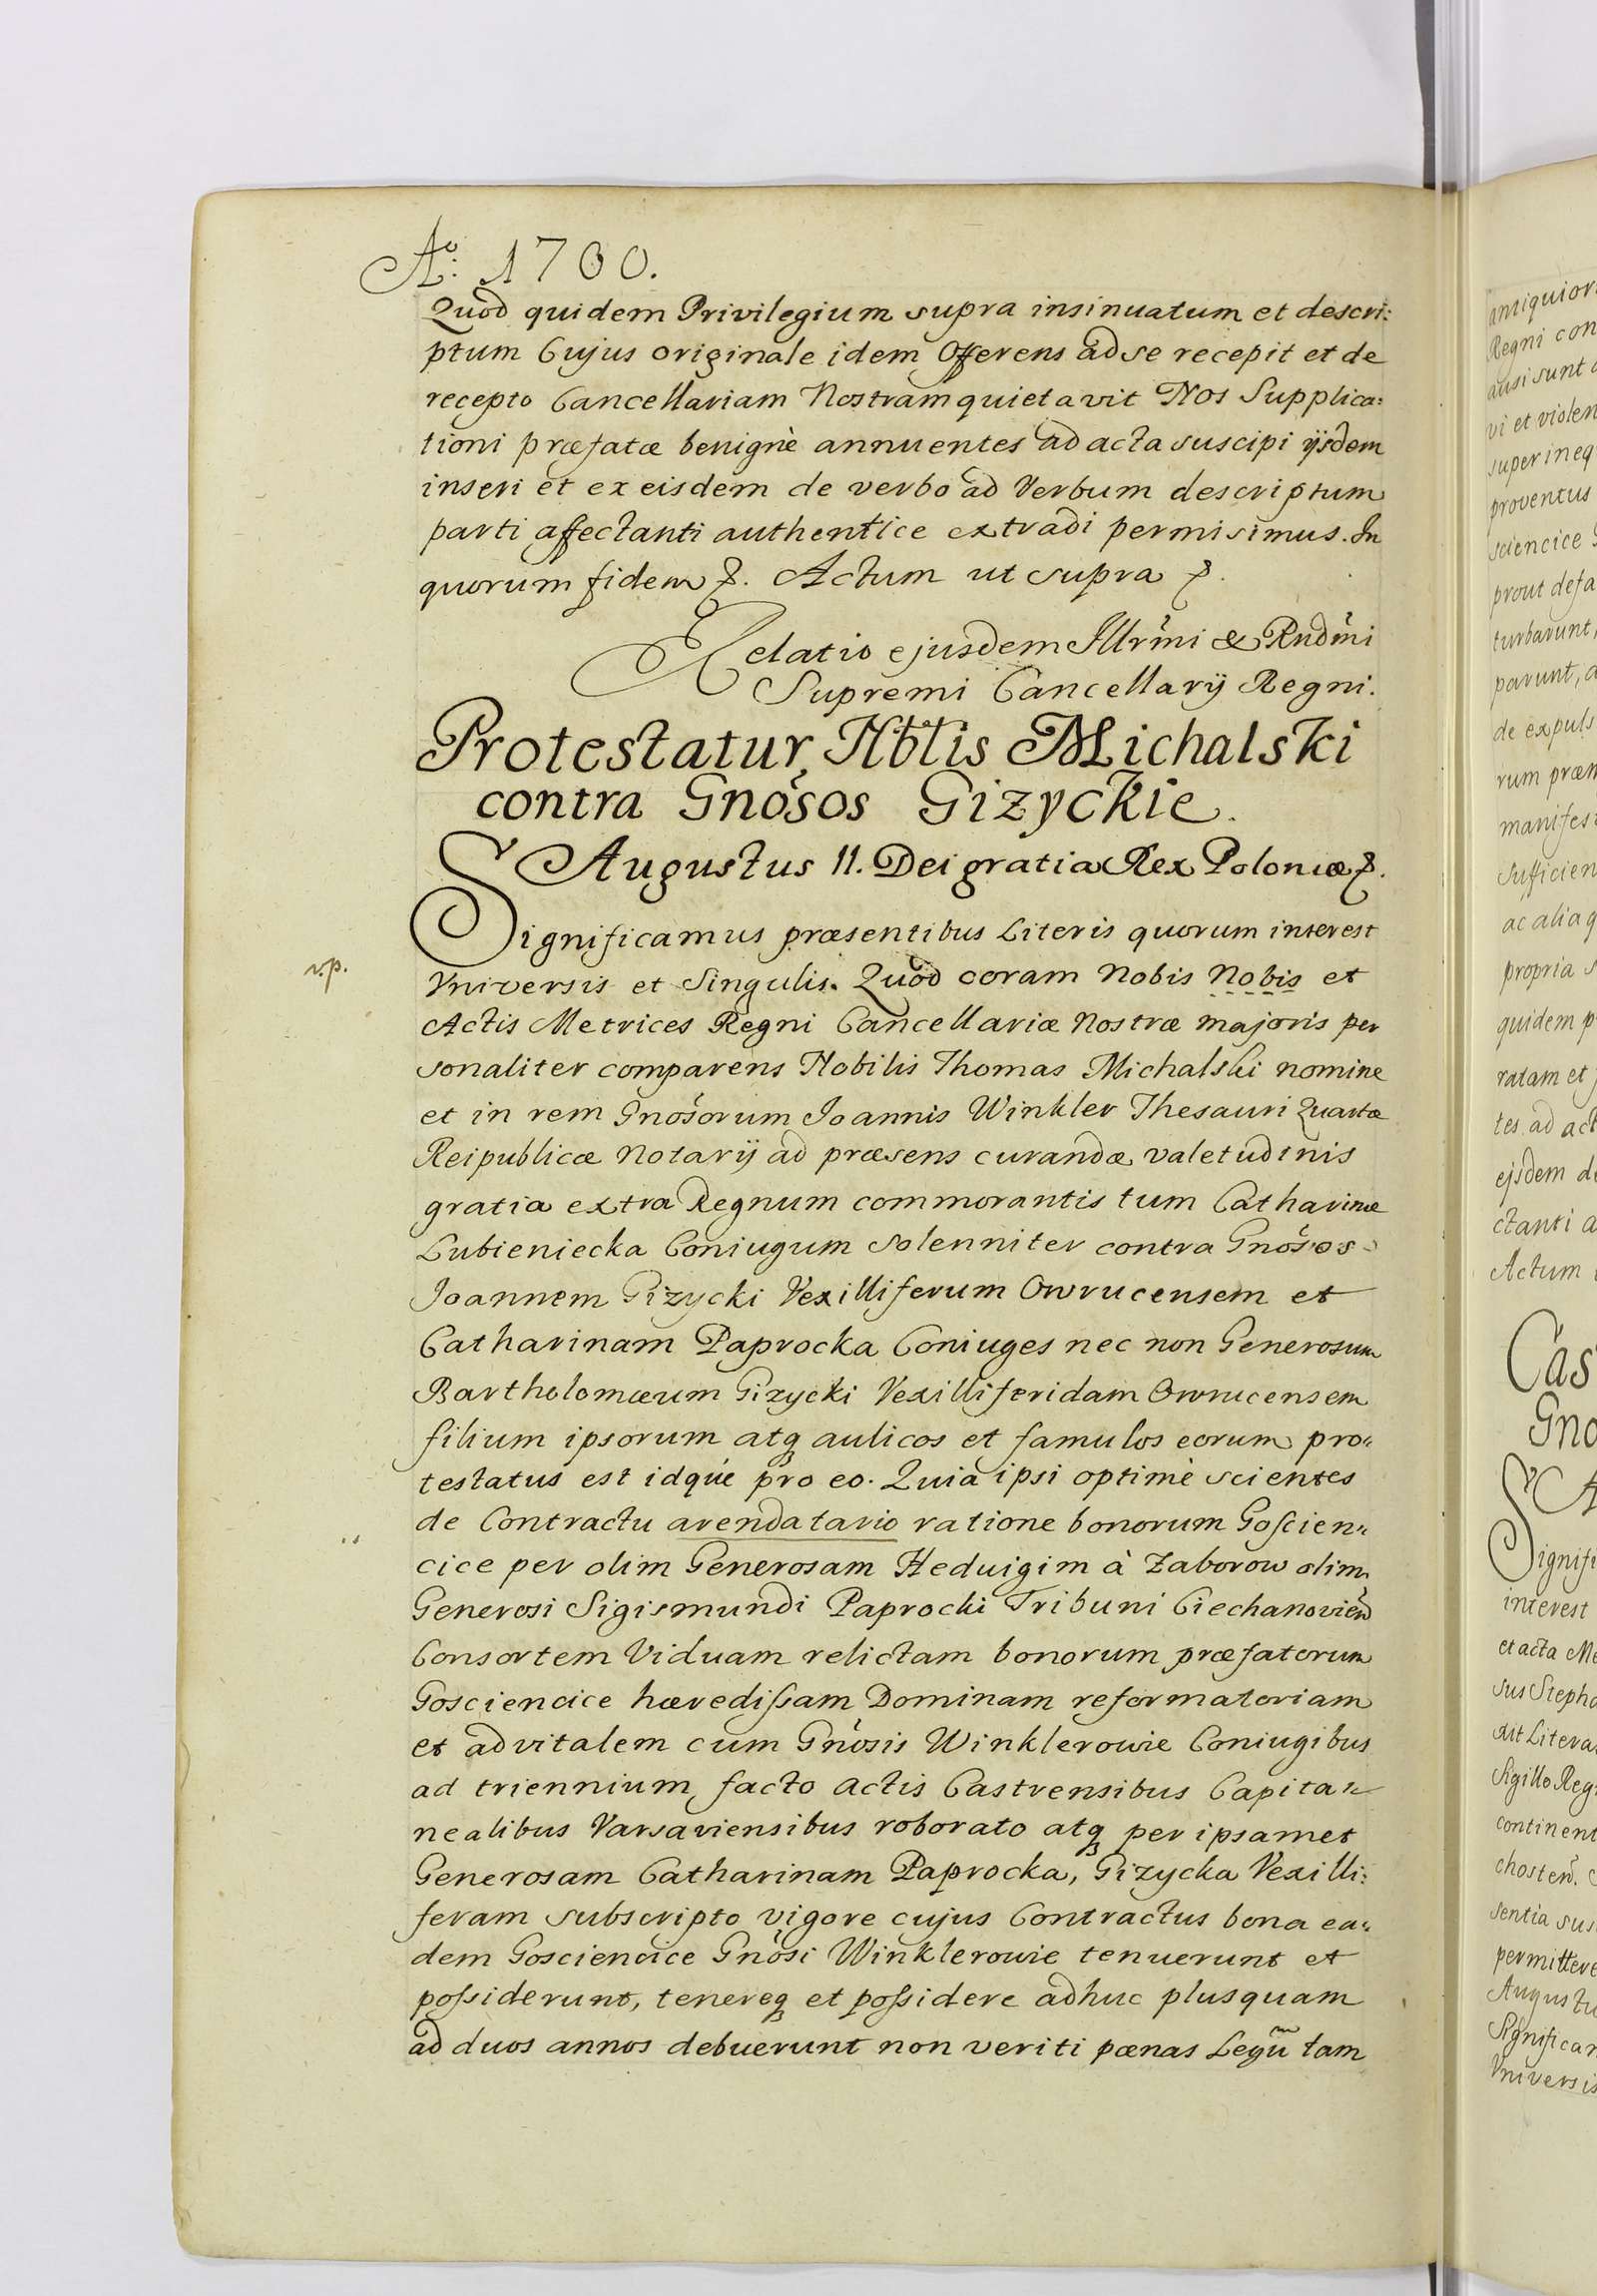 Aº: 1700.
Quod quidem Privilegium supra insinuatum et descri:
ptum Cujus originale idem Offerens ad se recepit et de
recepto Cancellariam Nostram quietavit Nos Supplica:
tioni præfatæ benignè annuentes ad acta suscipi ijsdem
inseri et ex eisdem de verbo ad Verbum descriptum
parti affectanti authentice extradi permisimus. In
quorum fidem &. Actum ut supra &.
Relatio ejusdem Illrm̃i & Rndm̃i
Supremi Cancellarij Regni.
Protestatur Nblis Michalski
contra Gnõsos Gizyckie.
Augustus II. Dei gratia Rex Poloniæ &.
Significamus præsentibus Literis quorum interest
v.p.
Vniversis et Singulis. Quod coram Nobis Nobis et
Actis Metrices Regni Cancellariæ Nostræ majoris per
sonaliter comparens Nobilis Thomas Michalski nomine
et in rem Gnõsorum Joannis Winkler Thesauri Quartæ
Reipublicæ Notarij ad præsens curandæ valetudinis
gratia extra Regnum commorantis tum Catharinæ
Lubieniecka Coniugum solenniter contra Gnõsos
Joannem Gizycki Vexilliferum Owrucensem et
Catharinam Paprocka Coniuges nec non Generosum
Bartholomæum Gizycki Vexilliferidam Owrucensem
filium ipsorum atq aulicos et famulos eorum pro„
testatus est idque pro eo. Quia ipsi optimè scientes
de Contractu arendatario ratione bonorum Goſcien„
cice per olim Generosam Heduigim à Zaborow olim
Generosi Sigismundi Paprocki Tribuni Ciechanovieñ
Consortem Viduam relictam bonorum præfatorum
Gosciencice hærediſsam Dominam reformatoriam
et advitalem cum Gnõsis Winklerowie Coniugibus
ad triennium facto actis Castrensibus Capita„
nealibus Varsaviensibus roborato atq per ipsamet
Generosam Catharinam Paprocka, Gizycka Vexilli:
feram subscripto vigore cujus Contractus bona ea„
dem Gosciencice Gnõsi Winklerowie tenuerunt et
poſsiderunt, tenereq et poſsidere adhuc plusquam
ad duos annos debuerunt non veriti pœnas Legũ tam
antiquior
Regni con
ausi sunt
vi et violen
super ineq
proventus
sciencice
prout defa
turbarunt,
parunt, a
de expuls
rum præm
manifest
sufficien
ac alia q
propria s
quidem p
ratam et
tes ad act
ejsdem de
ctanti a
Actum
Cas
Gno
A
Signifi
interest
et acta Me
sus Stepha
Litera
Sigillo Reg
continent
chosteñ.
sentia sus
permittere
Augustu
Significam
Vniversis